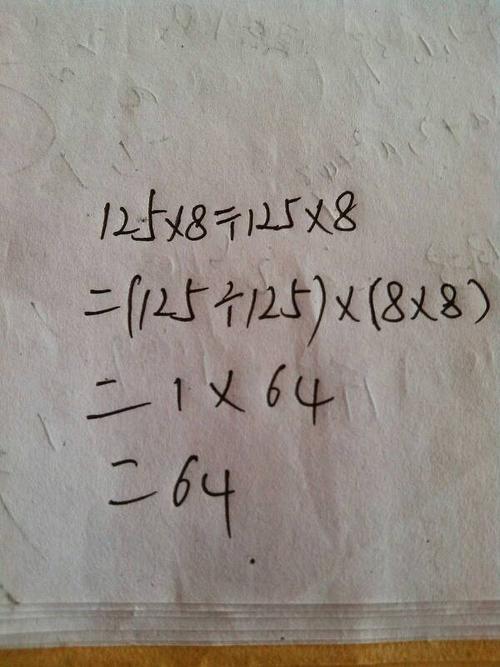 125×8÷125×8
=(125÷125)×(8×8)
=1×64
=64